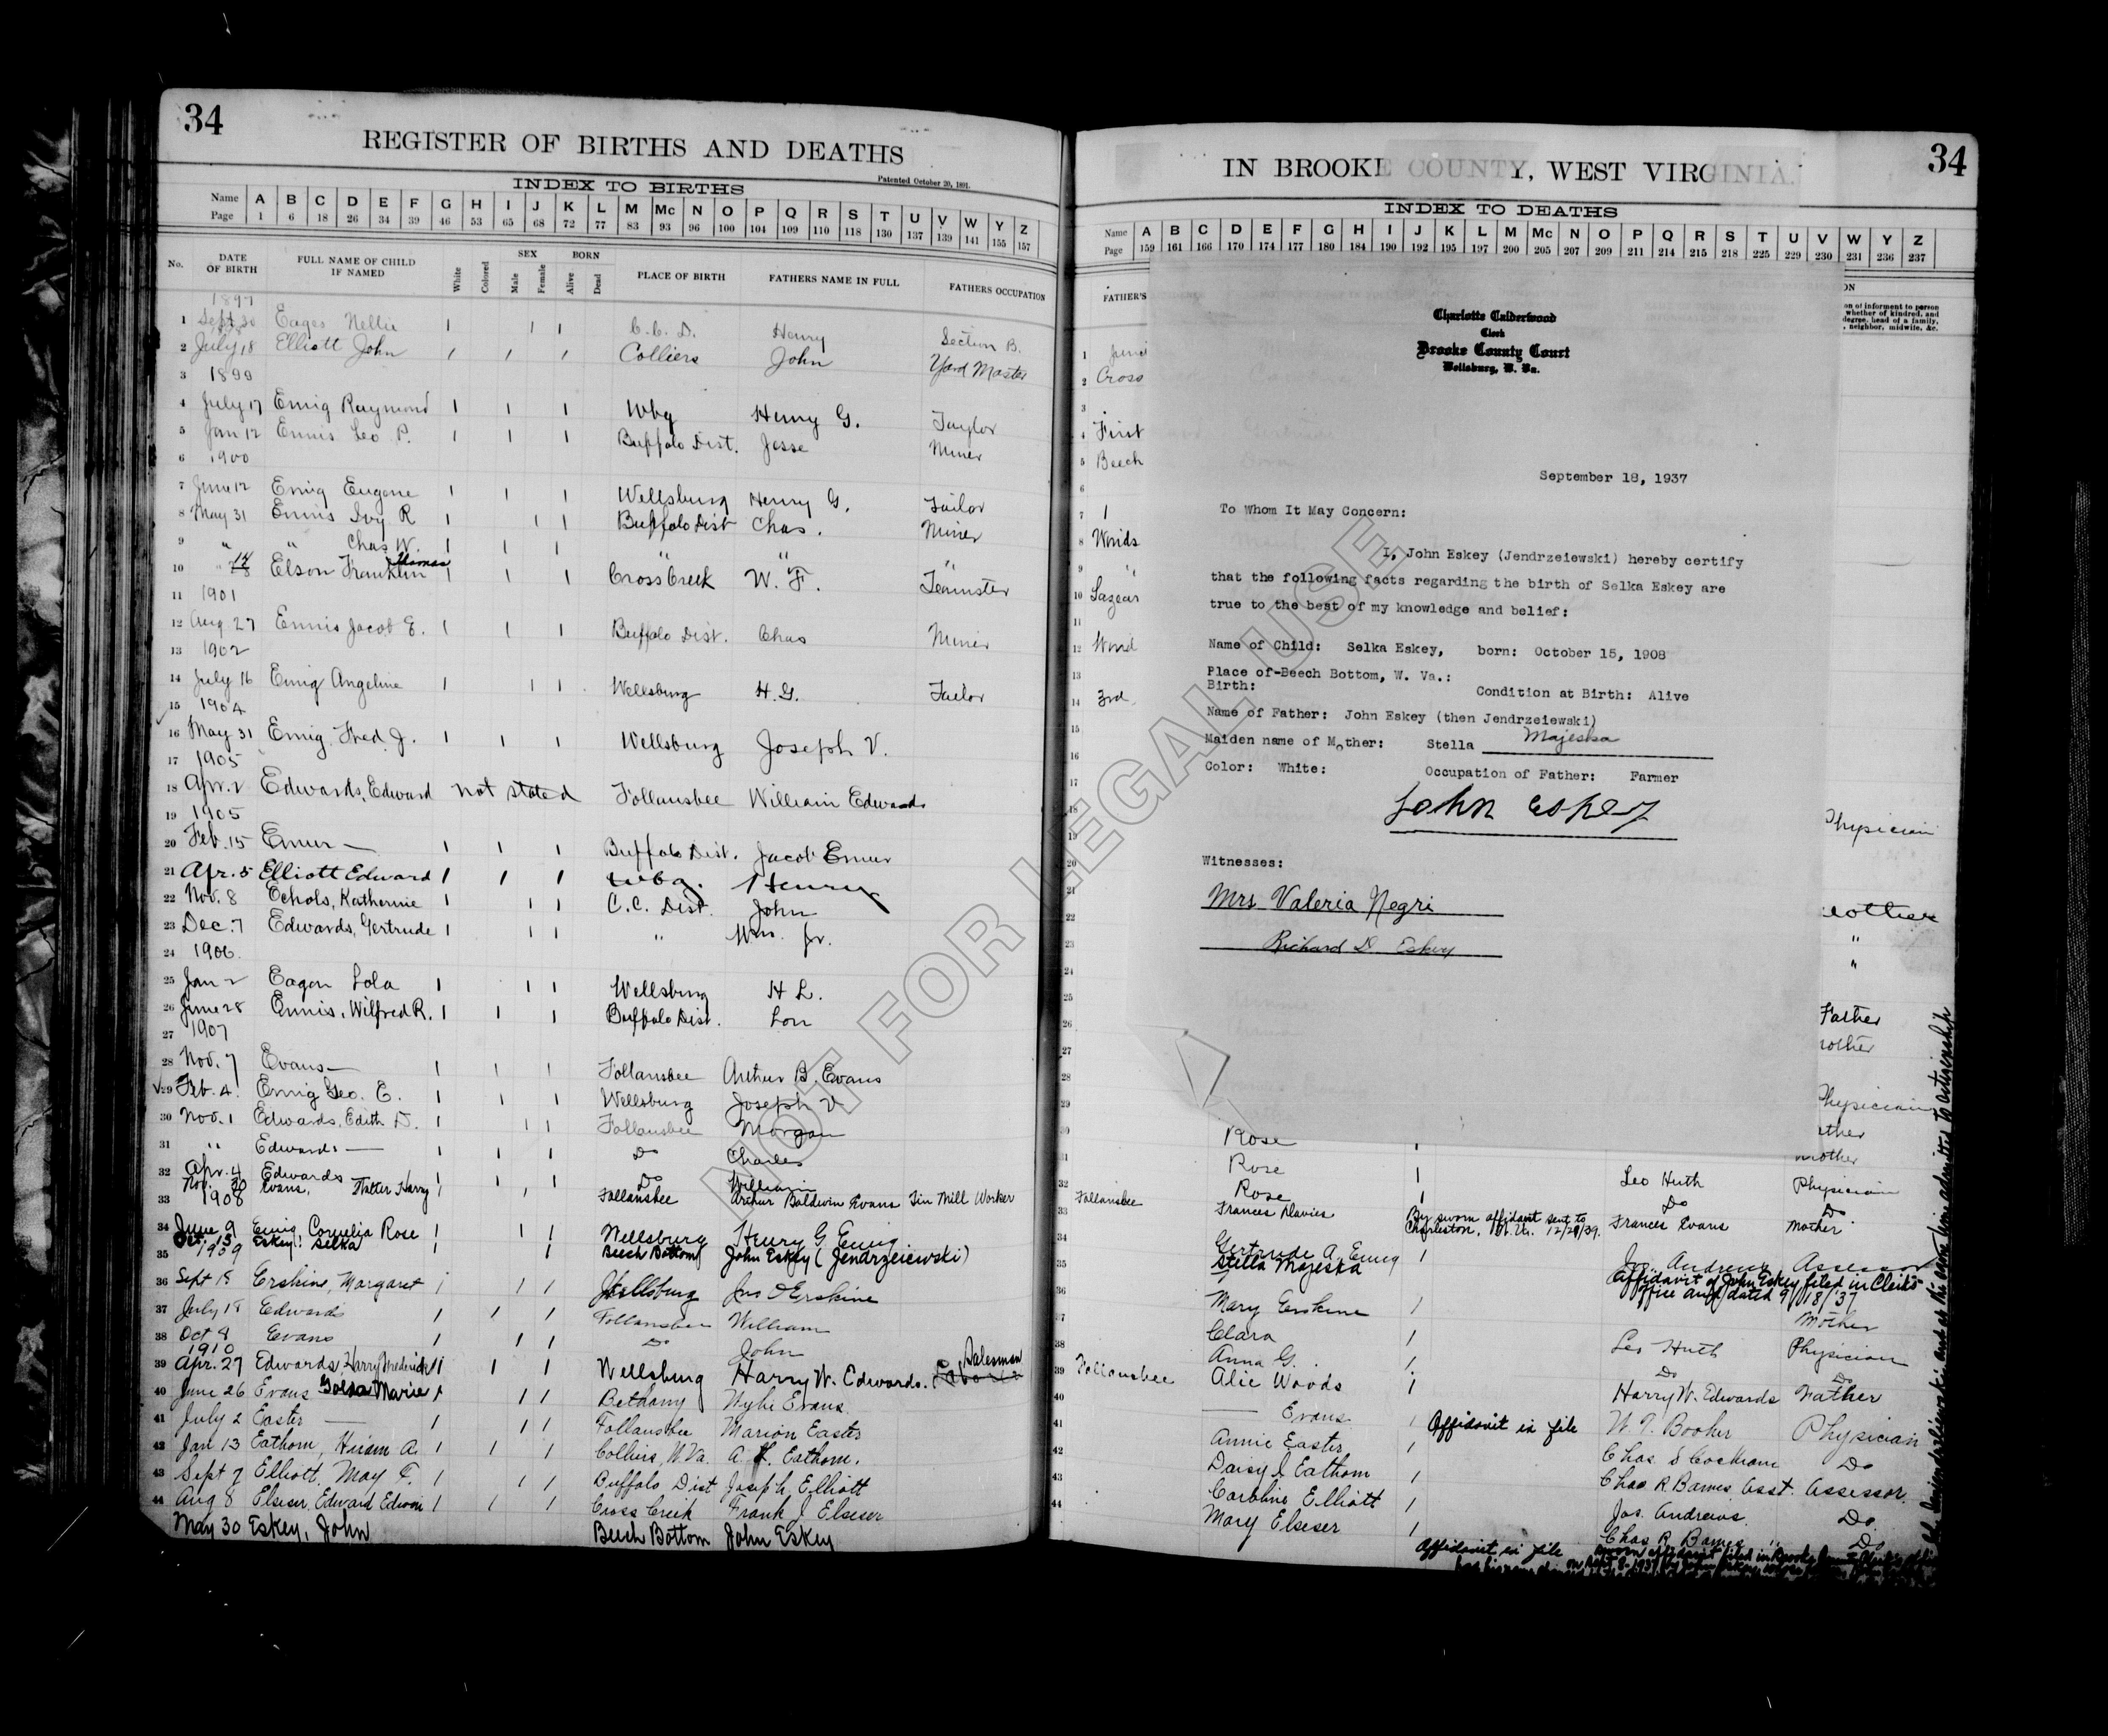 34
REGISTER OF BIRTHS AND DEATHS
Patented October 20, 1891.
INDEX TO BIRTHS
Name A B C D E F G H I J K L M Mc N O P Q R S T U V W Y Z
Page 1 6 18 26 34 39 46 53 65 68 72 77 83 93 96 100 104 109 110 118 130 137 139 141 155 157
No. DATE OF BIRTH FULL NAME OF CHILD IF NAMED White Colored SEX Male Female BORN Alive Dead PLACE OF BIRTH FATHERS NAME IN FULL FATHERS OCCUPATION
1897
1 Sept 30 Eages Nellie 1 1 1 C. C. D. Henry Section B.
2 July 18 Elliott John 1 1 1 Colliers John Yard Master
3 1899
4 July 17 Emig Raymond 1 1 1 Wbg Henry G. Taylor
5 Jan 12 Ennis Leo P. 1 1 1 Buffalo Dist. Jesse Miner
6 1900
7 June 12 Emig Eugene 1 1 1 Wellsburg Henry G. Tailor
8 May 31 Ennis Ivy R 1 1 1 Buffalo Dist Chas. Miner
9 " " Chas W. 1 1 1 " " "
10 " 14 Elson Franklin Thomas 1 1 1 Cross Creek W. F. Teamster
11 1901
12 Aug. 27 Ennis Jacob E. 1 1 1 Buffalo Dist. Chas Miner
13 1902
14 July 16 Emig Angeline 1 1 1 Wellsburg H. G. Tailor
15 1904
16 May 31 Emig Fred J. 1 1 1 Wellsburg Joseph V.
17 1905
18 Apr. 2 Edwards, Edward not stated Follansbee William Edwards
19 1905
20 Feb. 15 Emer — 1 1 1 Buffalo Dist. Jacob Emer
21 Apr. 5 Elliott Edward 1 1 1 Wbg. Henry
22 Nov. 8 Echols, Katherine 1 1 1 C. C. Dist. John
23 Dec. 7 Edwards, Gertrude 1 1 1 " Wm. Jr.
24 1906.
25 Jan 2 Eagon Lola 1 1 1 Wellsburg H L.
26 June 28 Ennis, Wilfred R. 1 1 1 Buffalo Dist. Lon
27 1907
28 Nov. 7 Evans — 1 1 1 Follansbee Arthur B. Evans
29 Feb. 4. Emig Geo. E. 1 1 1 Wellsburg Joseph V
30 Nov. 1 Edwards, Edith D. 1 1 1 Follansbee Morgan
31 " Edwards — 1 1 1 Do Charles
32 Apr. 4 Edwards 1 1 1 Do William
Nov. 30 Evans, Walter Harry 1 1 Follansbee Arthur Baldwin Evans Tin Mill Worker
33 1908
34 June 9 Emig Cornelia Rose 1 1 1 Wellsburg Henry G. Emig
Oct. 15 Eskey, Selka 1 1 Beech Bottom John Eskey (Jendrzeiewski)
35 1909
36 Sept 18 Erskine, Margaret 1 1 1 Wellsburg Jno Erskine
37 July 18 Edwards 1 1 1 Follansbee William
38 Oct 8 Evans 1 1 1 Do John
1910
39 Apr. 27 Edwards Harry Frederick 1 1 1 Wellsburg Harry W. Edwards. Salesman
40 June 26 Evans Golda Marie 1 1 1 Bethany Wylie Evans
41 July 2 Easter — 1 1 1 Follansbee Marion Easter
42 Jan 13 Eathom, Hiram A. 1 1 1 Colliers, W. Va. A. H. Eathom.
43 Sept 7 Elliott May F. 1 1 1 Buffalo Dist Joseph Elliott
44 Aug 8 Elseser, Edward Edwin 1 1 1 Cross Creek Frank J. Elseser
May 30 Eskey, John Beech Bottom John Eskey
34
IN BROOKE COUNTY, WEST VIRGINIA.
INDEX TO DEATHS
Name A B C D E F G H I J K L M Mc N O P Q R S T U V W Y Z
Page 159 161 166 170 174 177 180 184 190 192 195 197 200 205 207 209 211 214 215 218 225 229 230 231 236 237
FATHER'S
Charlotte Calderwood
Clerk
Brooke County Court
Wellsburg, W. Va.
September 18, 1937
To Whom It May Concern:
I, John Eskey (Jendrzeiewski) hereby certify
that the following facts regarding the birth of Selka Eskey are
true to the best of my knowledge and belief:
Name of Child: Selka Eskey, born: October 15, 1908
Place of-Beech Bottom, W. Va.:
Birth: Condition at Birth: Alive
Name of Father: John Eskey (then Jendrzeiewski)
Maiden name of Mother: Stella Majeska
Color: White: Occupation of Father: Farmer
John Eskey
Witnesses:
Mrs. Valeria Negri
Richard D. Eskey
Cross
First
Beech
Third
3rd
Physician
Mother
"
"
Father
Mother
Physician
Father
Rose Mother
Rose 1 Leo Huth Physician
Rose 1 Do Do
Follansbee Frances Davies By sworn affidavit sent to Charleston, W. Va. 12/29/39. Frances Evans Mother
Gertrude A. Emig 1 Jos. Andrews Assessor
Stella Majeska Affidavit of John Eskey filed in Clerk's Office and dated 9/18/37
Mary Erskine 1 Mother
Clara 1 Leo Huth Physician
Anna G. 1 Do Do
Follansbee Alie Woods 1 Harry W. Edwards Father
— Evans 1 Affidavit in file W. T. Booher Physician
Annie Easter 1 Chas S Cochran Do
Daisy I Eathom 1 Chas R Barnes Asst. Assessor.
Caroline Elliott 1 Jos. Andrews. Do.
Mary Elseser 1 Chas R Barnes " Do
Affidavit in file
NOT FOR LEGAL USE